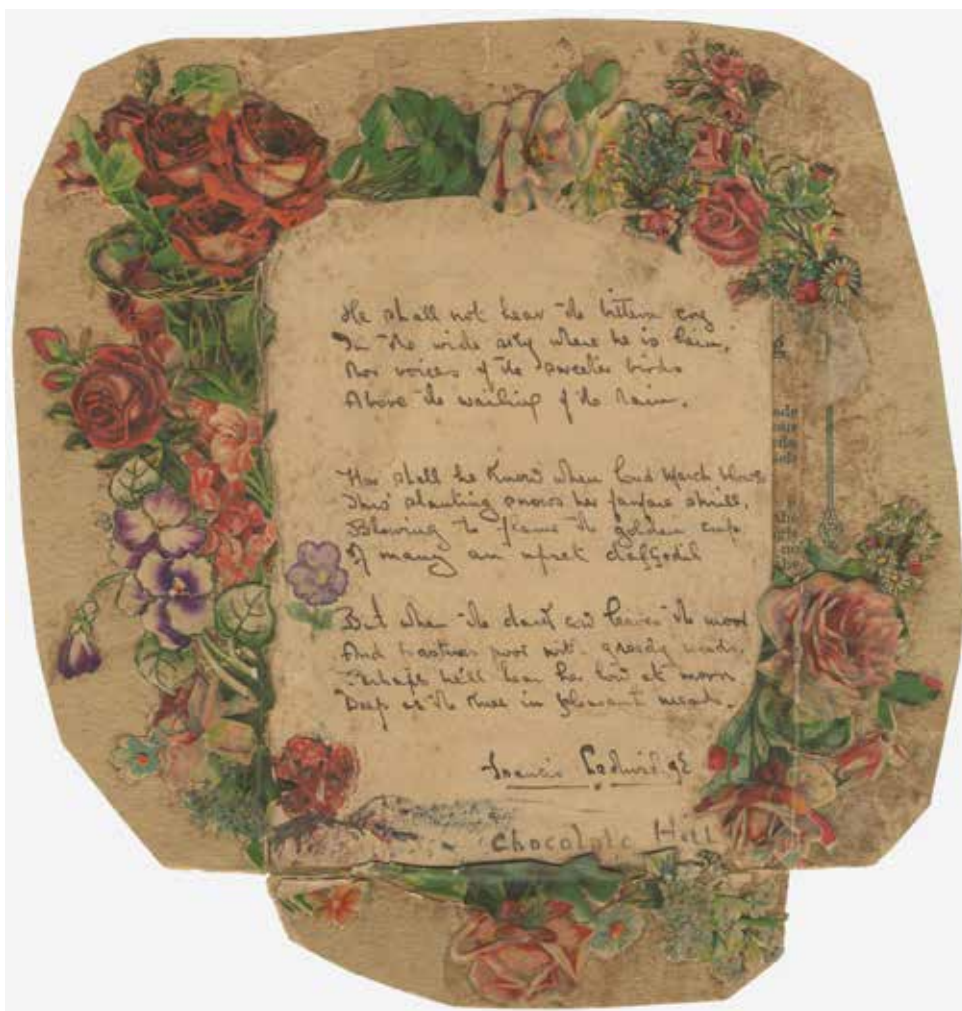 He shall not hear the bittern cry
In the wide sky where he is lain,
Nor voices of the sweeter birds
Above the wailing of the rain.
Nor shall he know when loud March blows
Thro' slanting snows her fanfare shrill,
Blowing to flame the golden cup
Of many an upset daffodil
But when the dark cow leaves the moor
And pastures poor with greedy weeds,
Perhaps he'll hear her low at morn
Deep as the in pleasant meads.
Francis Ledwidge
Chocolate Hill